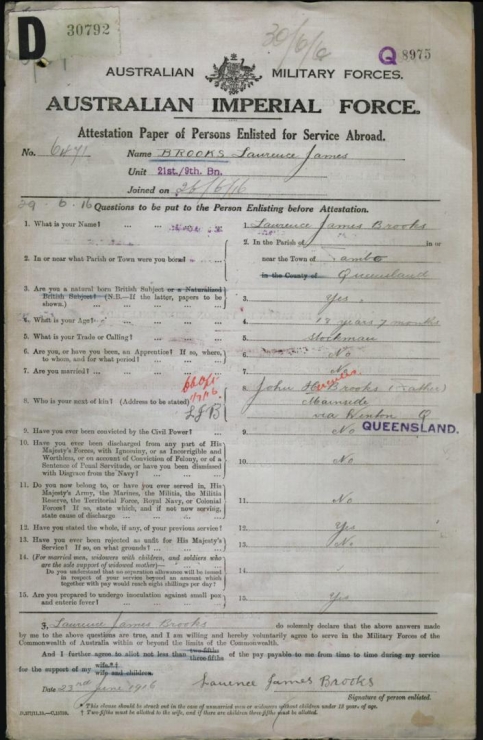 D 30792
30/6/6
Q 8975
AUSTRALIAN MILITARY FORCES.
AUSTRALIAN IMPERIAL FORCE.
Attestation Paper of Persons Enlisted for Service Abroad.
No. 6471 Name BROOKS Laurence James
Unit 21st./9th. Bn.
Joined on 26/6/16
29. 6. 16 Questions to be put to the Person Enlisting before Attestation.
1. What is your Name? ... ... 1. Laurence James Brooks
2. In or near what Parish or Town were you born? ... 2. In the Parish of in or
near the Town of Tambo
in the County of Queensland
3. Are you a natural born British Subject or a Naturalised
British Subject? (N.B.—If the latter, papers to be
shown.) 3. Yes
4. What is your Age? 4. years 7 months
5. What is your Trade or Calling? 5. Stockman
6. Are you, or have you been, an Apprentice? If so, where,
to whom, and for what period? 6. No
7. Are you married? 7. No
8. Who is your next of kin? (Address to be stated) LJB 8. John Brooks (Father)
Mainside
via Winton Q
QUEENSLAND.
9. Have you ever been convicted by the Civil Power? 9. No
10. Have you ever been discharged from any part of His
Majesty's Forces, with Ignominy, or as Incorrigible and
Worthless, or on account of Conviction of Felony, or of a
Sentence of Penal Servitude, or have you been dismissed
with Disgrace from the Navy? 10. No
11. Do you now belong to, or have you ever served in, His
Majesty's Army, the Marines, the Militia, the Militia
Reserve, the Territorial Force, Royal Navy, or Colonial
Forces? If so, state which, and if not now serving,
state cause of discharge 11. No
12. Have you stated the whole, if any, of your previous service? 12. Yes
13. Have you ever been rejected as unfit for His Majesty's
Service? If so, on what grounds? 13. No
14. (For married men, widowers with children, and soldiers who
are the sole support of widowed mother)—
Do you understand that no separation allowance will be issued
in respect of your service beyond an amount which
together with pay would reach eight shillings per day? 14.
15. Are you prepared to undergo inoculation against small pox
and enteric fever? 15. Yes
I, Laurence James Brooks do solemnly declare that the above answers made
by me to the above questions are true, and I am willing and hereby voluntarily agree to serve in the Military Forces of the
Commonwealth of Australia within or beyond the limits of the Commonwealth.
And I further agree to allot not less than two-fifths three-fifths of the pay payable to me from time to time during my service
for the support of my wife*† wife and children.
Date 23rd June 1916 Laurence James Brooks
Signature of person enlisted.
* This clause should be struck out in the case of unmarried men or widowers without children under 18 years of age.
† Two-fifths must be allotted to the wife, and if there are children three-fifths must be allotted.